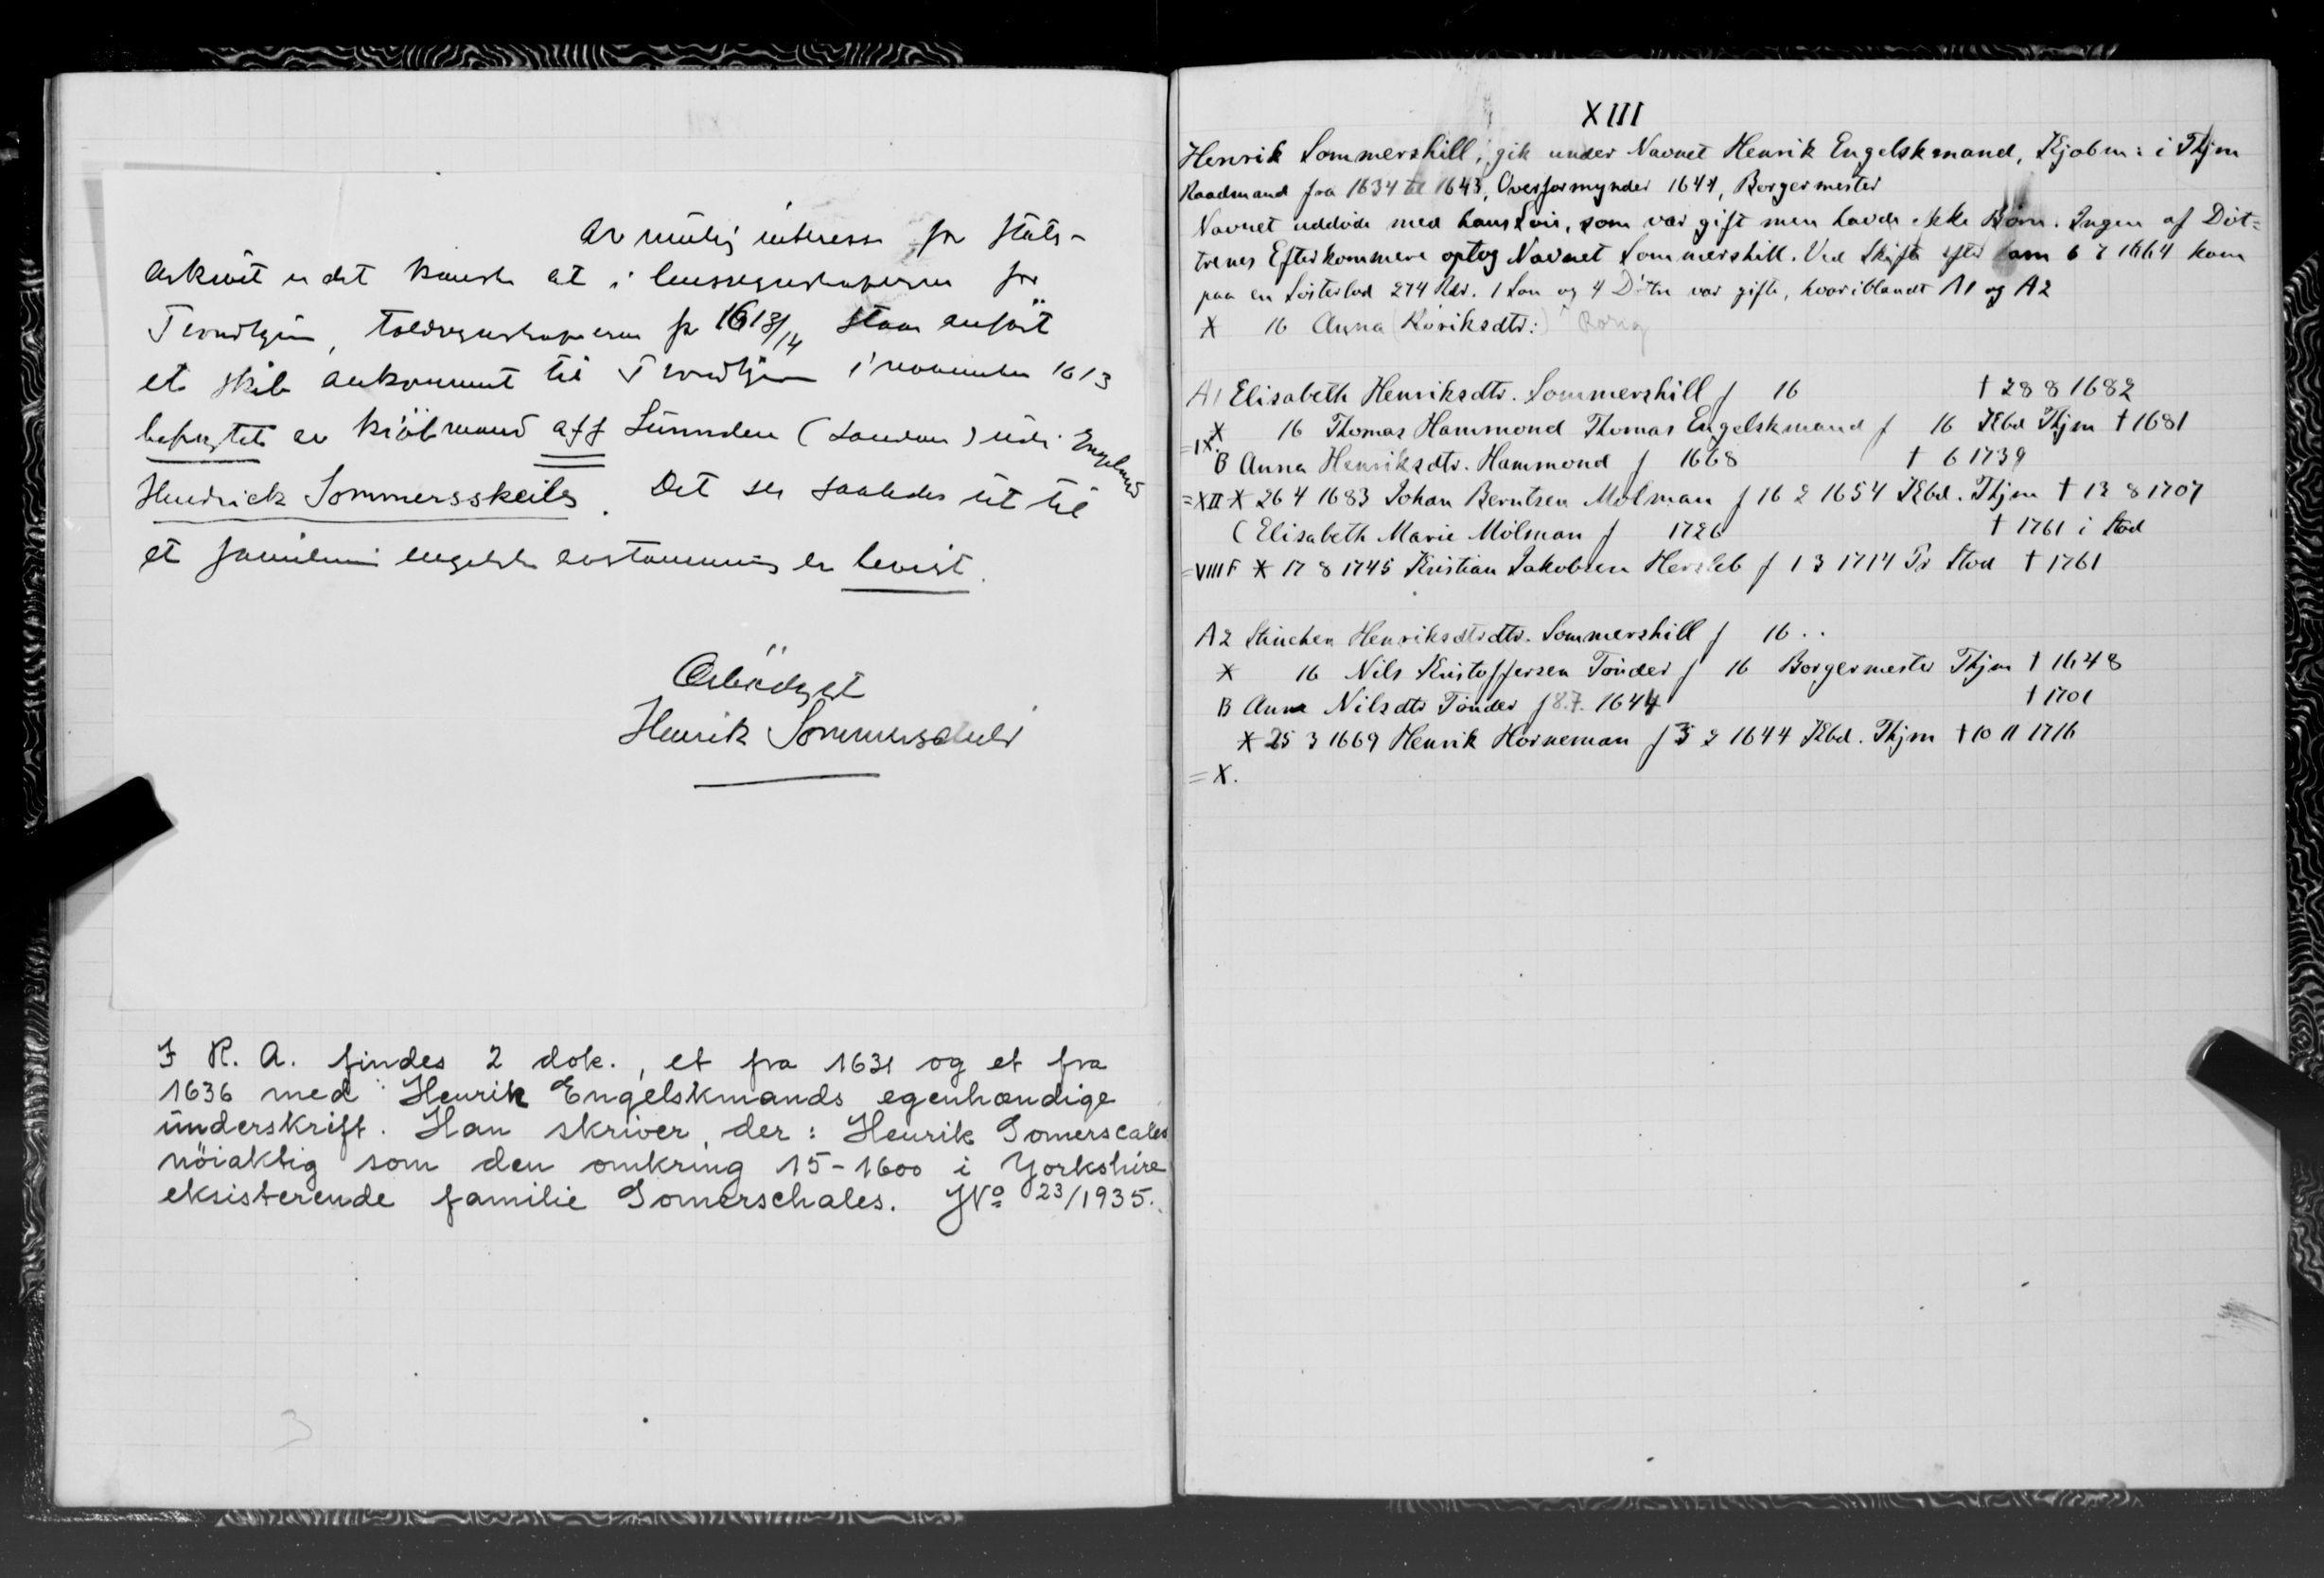 Av mulig interesse for stats-
arkivet er det kanske at i lensregnskaperne for
Trondhjem, toldregnskaperne for 1613/14 staar anført
et skib ankommet til Trondhjem i november 1613
befragtet av kiöbmand aff Lünnden (London) udi Engeland
Hendrick Sommersskeils. Det ser saaledes ut til
at familiens engelske avstamning er bevist.
Ærbödigst
Henrik Sommerschield
I R. A. findes 2 dok., et fra 1631 og et fra
1636 med Henrik Engelskmands egenhændige
ünderskrift. Han skriver der: Henrik Somerscales
nöiaktig som den omkring 15-1600 i Yorkshire
eksisterende familie Somerschales. JNo 23/1935.
3
XIII
Henrik Sommershill, gik under Navnet Henrik Engelskmand, Kjøbm: i Thjm
Raadmand fra 1634 til 1643, Overformynder 1644, Borgermester
Navnet uddøde med hans Søn, som var gift men havde ikke Børn. Ingen af Døt=
trenes Efterkommere optog Navnet Sommershill. Ved Skifte efter ham 6 7 1664 kom
paa en Søsterlod 274 Rdr. 1 Søn og 4 Døtre var gifte, hvoriblandt A1 og A2
X 16 Anna (Røriksdtr:) Rørig
A1 Elisabeth Henriksdtr. Sommershill f 16 † 28 8 1682
X 16 Thomas Hammond Thomas Engelskmand f 16 Kbd Thjm † 1681
=IX.
B Anna Henriksdtr. Hammond f 1668 † 6 1739
=XII X 26 4 1683 Johan Berntsen Mølman f 16 2 1654 Kbd. Thjm † 12 8 1707
C Elisabeth Marie Mølman f 1726 † 1761 i Stod
=VIII F X 17 8 1745 Kristian Jakobsen Hersleb f 1 3 1714 Pr Stod † 1761
A2 Stinchen Henriksdtrdtr. Sommershill f 16..
X 16 Nils Kristoffersen Tønder f 16 Borgermester Thjm † 1648
B Anna Nilsdtr Tønder f 8.7. 1644 † 1701
X 25 3 1669 Henrik Horneman f 3 2 1644 Kbd. Thjm † 10 11 1716
=X.